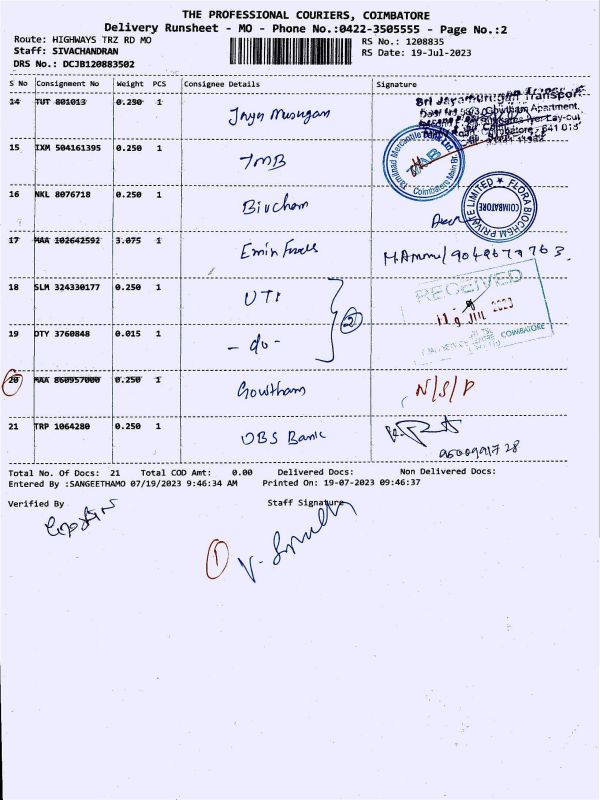 THE PROFESSIONAL COURIERS, COIMBATORE
Delivery Runsheet - MO - Phone No.:0422-3505555 - Page No.:2
Route: HIGHWAYS TRZ RD MO
RS No.: 1208835
Staff: SIVACHANDRAN
RS Date: 19-Jul-2023
DRS No.: DCJB120883502
S No Consignment No Weight PCS Consignee Details Signature
14 TUT 801013 0.290 1 Jaya Murugan
Sri Jayamurugan Transport
Gowtham Apartment,
Coimbatore - 641 018
15 IXM 504161395 0.250 1 TMB
Tamilnad Mercantile Bank Ltd
Coimbatore Main Br.
16 NKL 8076718 0.250 1 Biochem
FLORA BIOCHEM PRIVATE LIMITED
COIMBATORE
17 MAA 102642592 3.075 1
18 SLM 324330177 0.250 1 UTI
RECEIVED
19 JUL 2023
COIMBATORE
2
19 DTY 3760848 0.015 1 - do -
20 MAA 860957000 0.250 1 Gowtham N/S/P
21 TRP 1064280 0.250 1 UBS Bank
Total No. Of Docs: 21 Total COD Amt: 0.00 Delivered Docs: Non Delivered Docs:
Entered By :SANGEETHAMO 07/19/2023 9:46:34 AM Printed On: 19-07-2023 09:46:37
Verified By Staff Signature
1